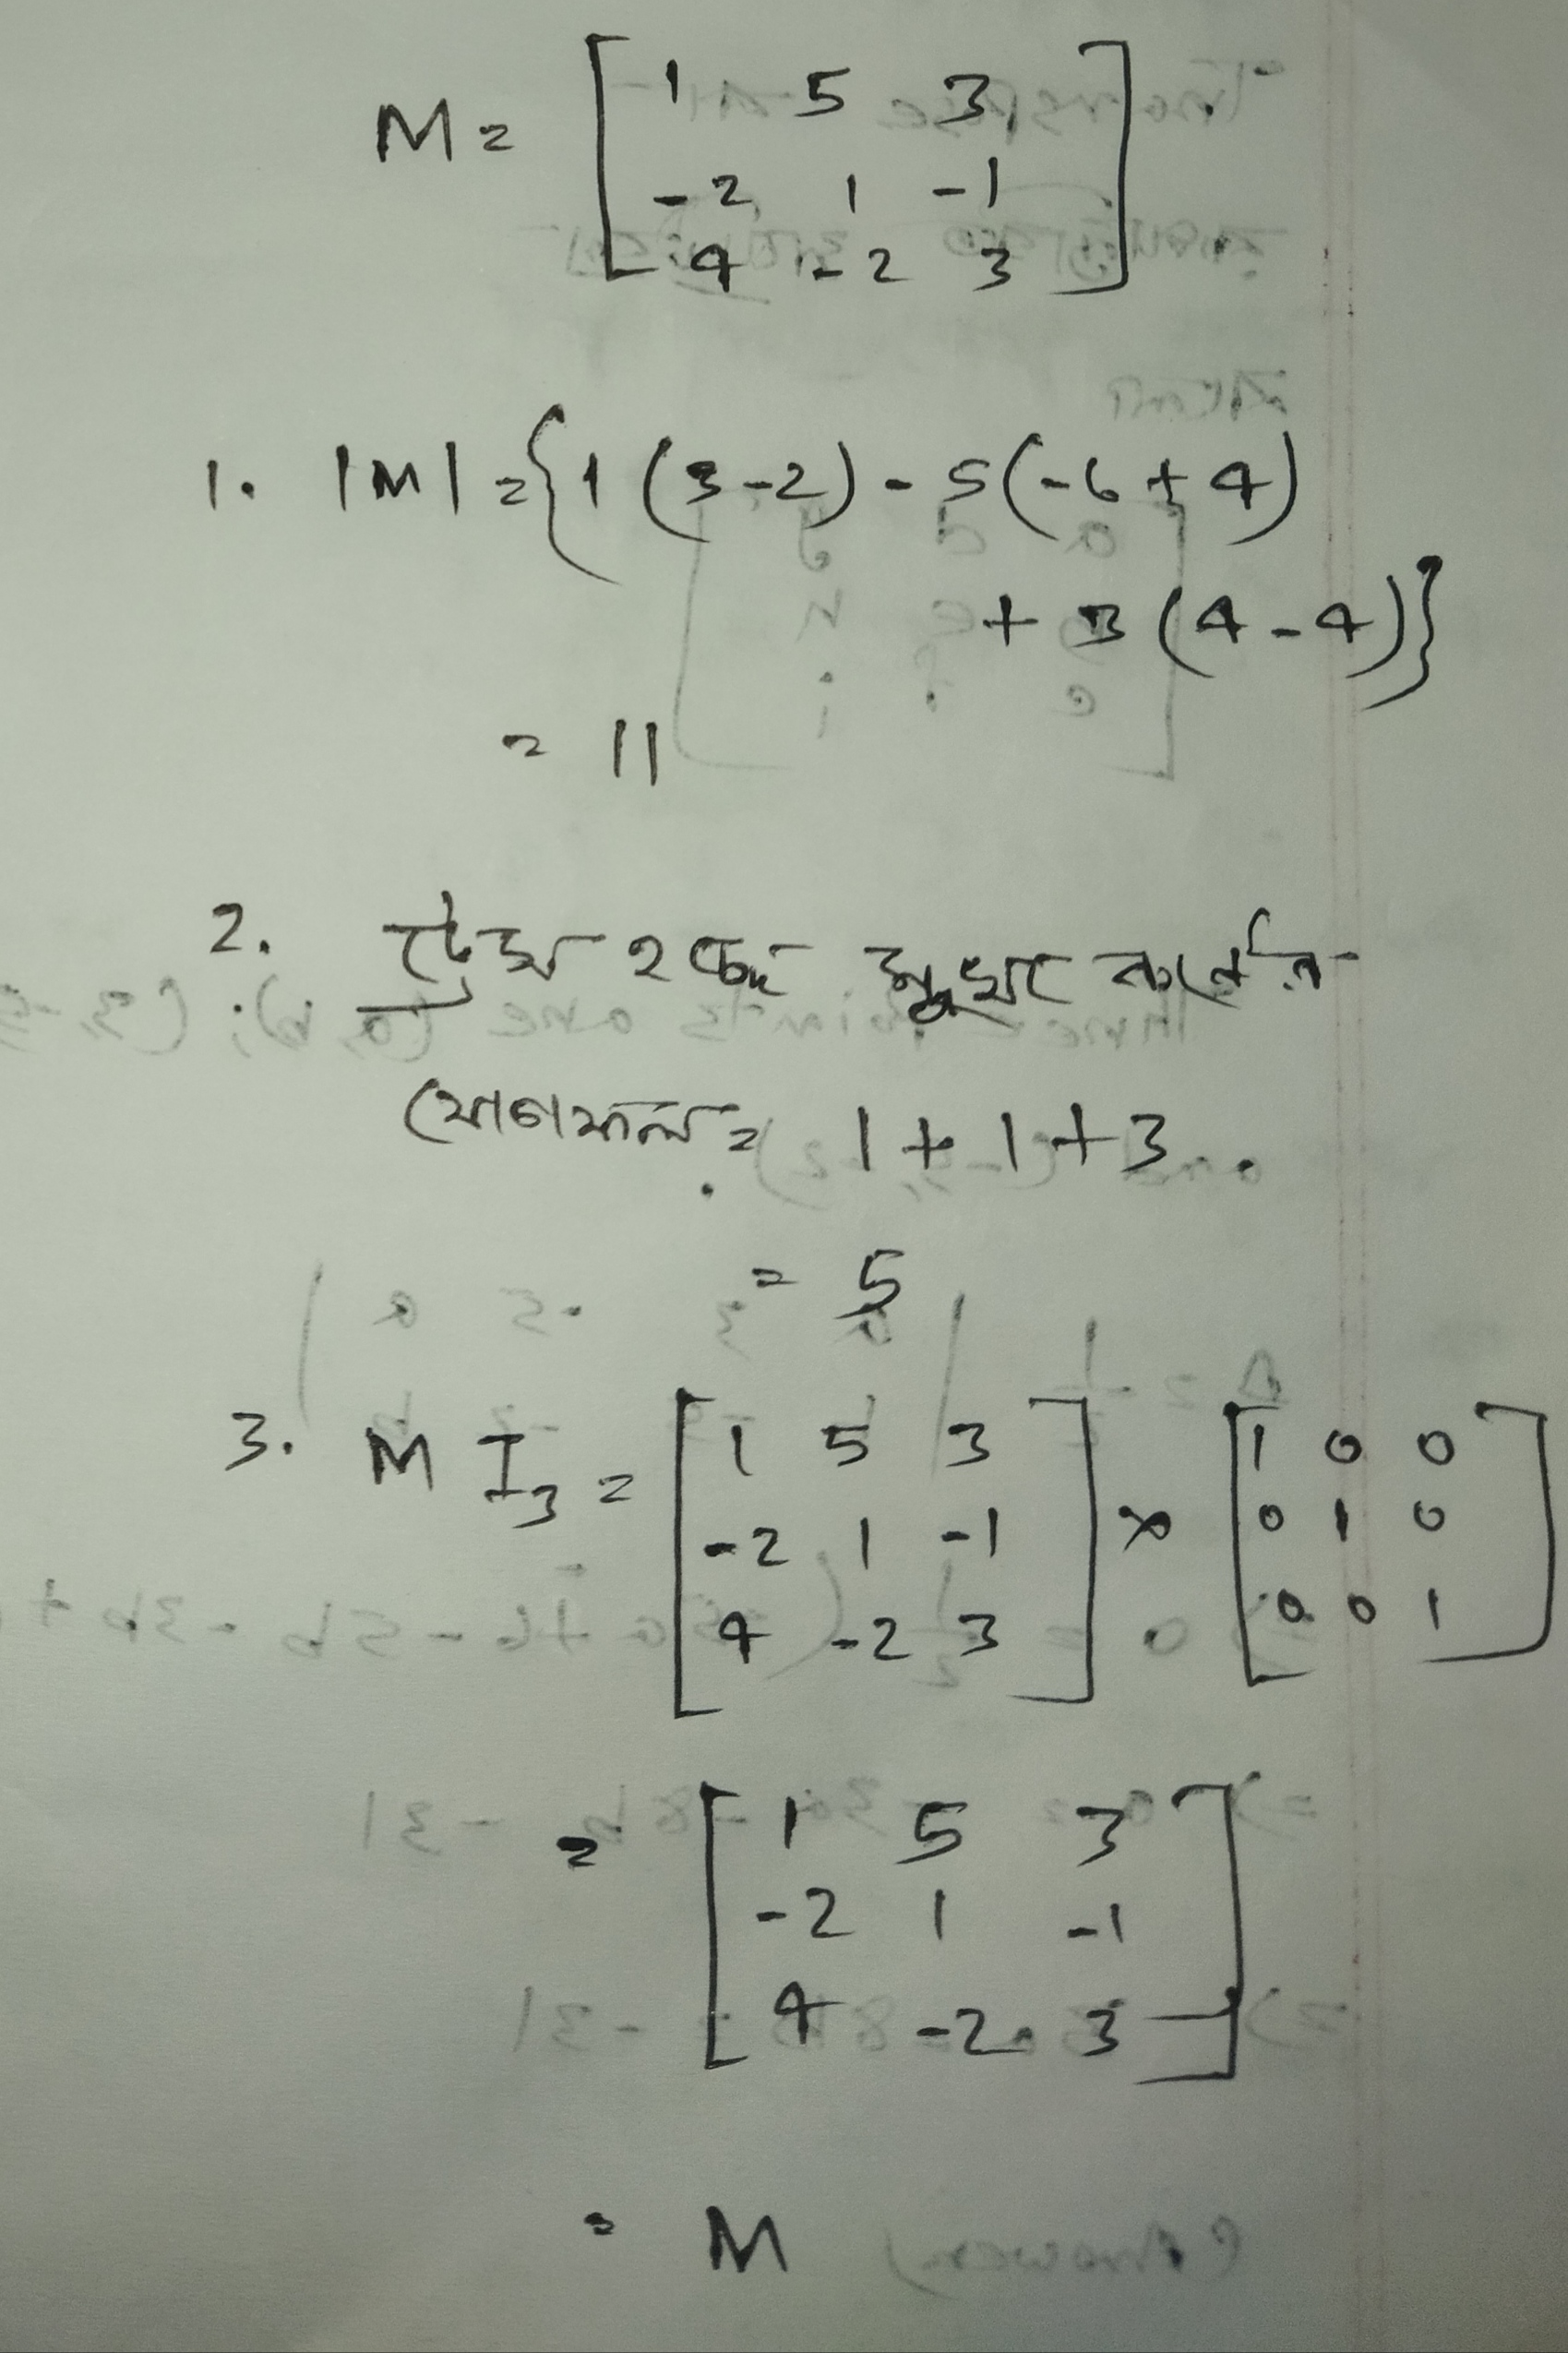 M = [ 1 5 3
-2 1 -1
4 -2 3 ]
1. |M| = { 1 (3-2) - 5 (-6 + 4)
+ 3 (4 - 4)}
= 11
2. ট্রেস হচ্ছে মুখ্য কর্ণের
যোগফল = 1 + 1 + 3
= 5
3. M I₃ = [ 1 5 3 ] × [ 1 0 0 ]
[ -2 1 -1 ] [ 0 1 0 ]
[ 4 -2 3 ] [ 0 0 1 ]
= [ 1 5 3
-2 1 -1
4 -2 3 ]
= M